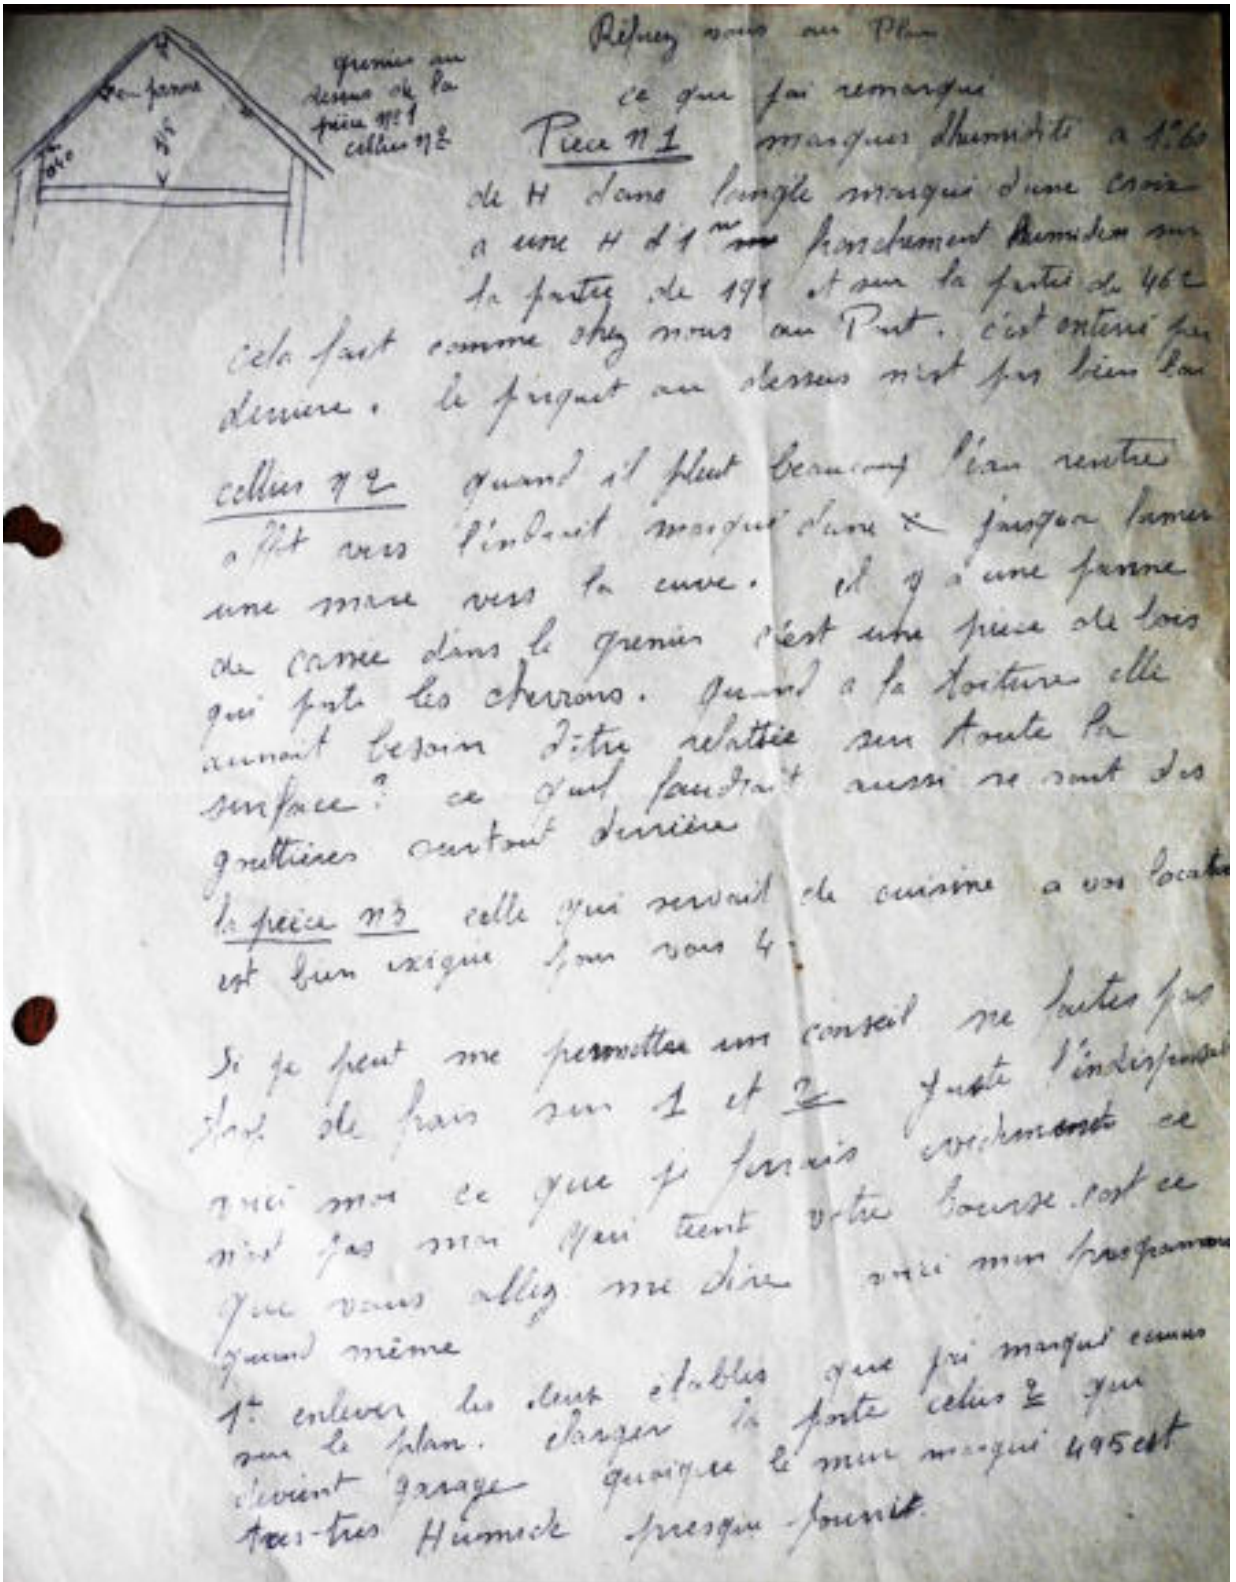 Référez vous au Plan
grenier au
dessus de la
pièce N°1
cellier N°2
panne
ce que jai remarqué
Pièce N 1 marques dhumidité a 1m60
de H dans langle marqué d'une croix
a une H d'1m franchement humides sur
la partie de 191 et sur la partie de 462
cela fait comme chez nous au Port. c'est enterré par
derriere. le parquet au dessus n'est pas bien bon
cellier N 2 quand il pleut beaucoup l'eau rentre
vers l'endroit marqué dune x jusqua
une mare vers la cuve. il y a une panne
de cassée dans le grenier c'est une pièce de bois
qui porte les chevrons. quand a la toiture elle
aurait besoin d'être relattée sur toute la
surface? ce quil faudrait aussi se sont des
gouttières surtout derrière
la pièce N3 celle qui servait de cuisine a vos
est bien exigue pour vous 4
Si je peut me permettre un conseil ne faites pas
trop de frais sur 1 et 2 juste
voici moi ce que je ferrais evidement ce
n'est pas moi qui tient votre bourse c'est ce
que vous allez me dire voici mon programme
quand même
1° enlever les deux étables que jai marqué
sur le plan. élargir la porte celier 2 qui
devient garage quoique le mur marqué 495 est
tres-tres Humide presque pourrit.